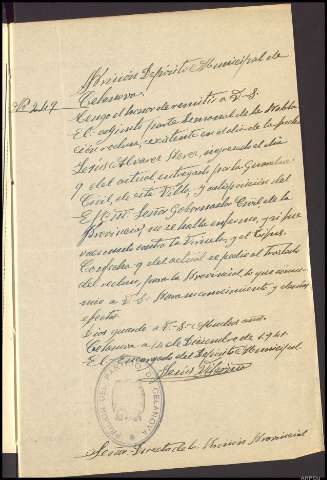 Prisión Depósito Municipal de
Celanova.
Nº 247
Tengo el honor de remitir a V.S.
El adjunto parte semanal de la Pobla
ción reclusa, existente en el día de la fecha
Jesús Alvarez ingresado el día
9 del actual entregado por la Guardia
Civil, de esta Villa, y a disposición del
Excmo Señor Gobernador Civil de la
Provincia, no se halla enfermo, y si fue
vacunado contra la Viruela, y el Tifus,
Con fecha 9 del actual se pedio el traslado
del recluso, para la Provincial, lo que comu
nico a V.S. Para su conocimiento y demás
efectos.
Dios guarde a V.S. Muchos años.
Celanova a 14 de Diciembre de 1941.
El Encargado del Depósito Municipal
Jesús
PRISION DEL PARTIDO DE CELANOVA
Señor Director de la Prisión Provincial